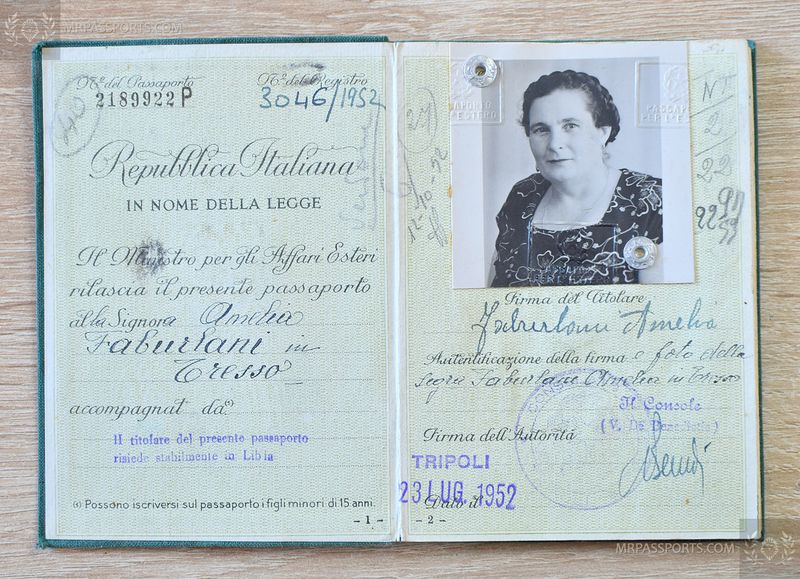 MRPASSPORTS.COM
N.º del Passaporto N.º del Registro
2189922 P 3046/1952
Repubblica Italiana
IN NOME DELLA LEGGE
Il Ministro per gli Affari Esteri
rilascia il presente passaporto
alla Signora Amelia
Faburlani in
Tresso
accompagnat da (1)
Il titolare del presente passaporto
risiede stabilmente in Libia
(1) Possono iscriversi sul passaporto i figli minori di 15 anni.
- 1 -
27
12-10-52
PASSAPORTO
PER L'ESTERO
2
22
Firma del Titolare
Faburlani Amelia
Autentificazione della firma e foto della
Segra Faburlani Amelia in Tresso
Il Console
(V. De Benedictis)
Firma dell'Autorità
TRIPOLI
23 LUG. 1952
Dato il
- 2 -
MRPASSPORTS.COM